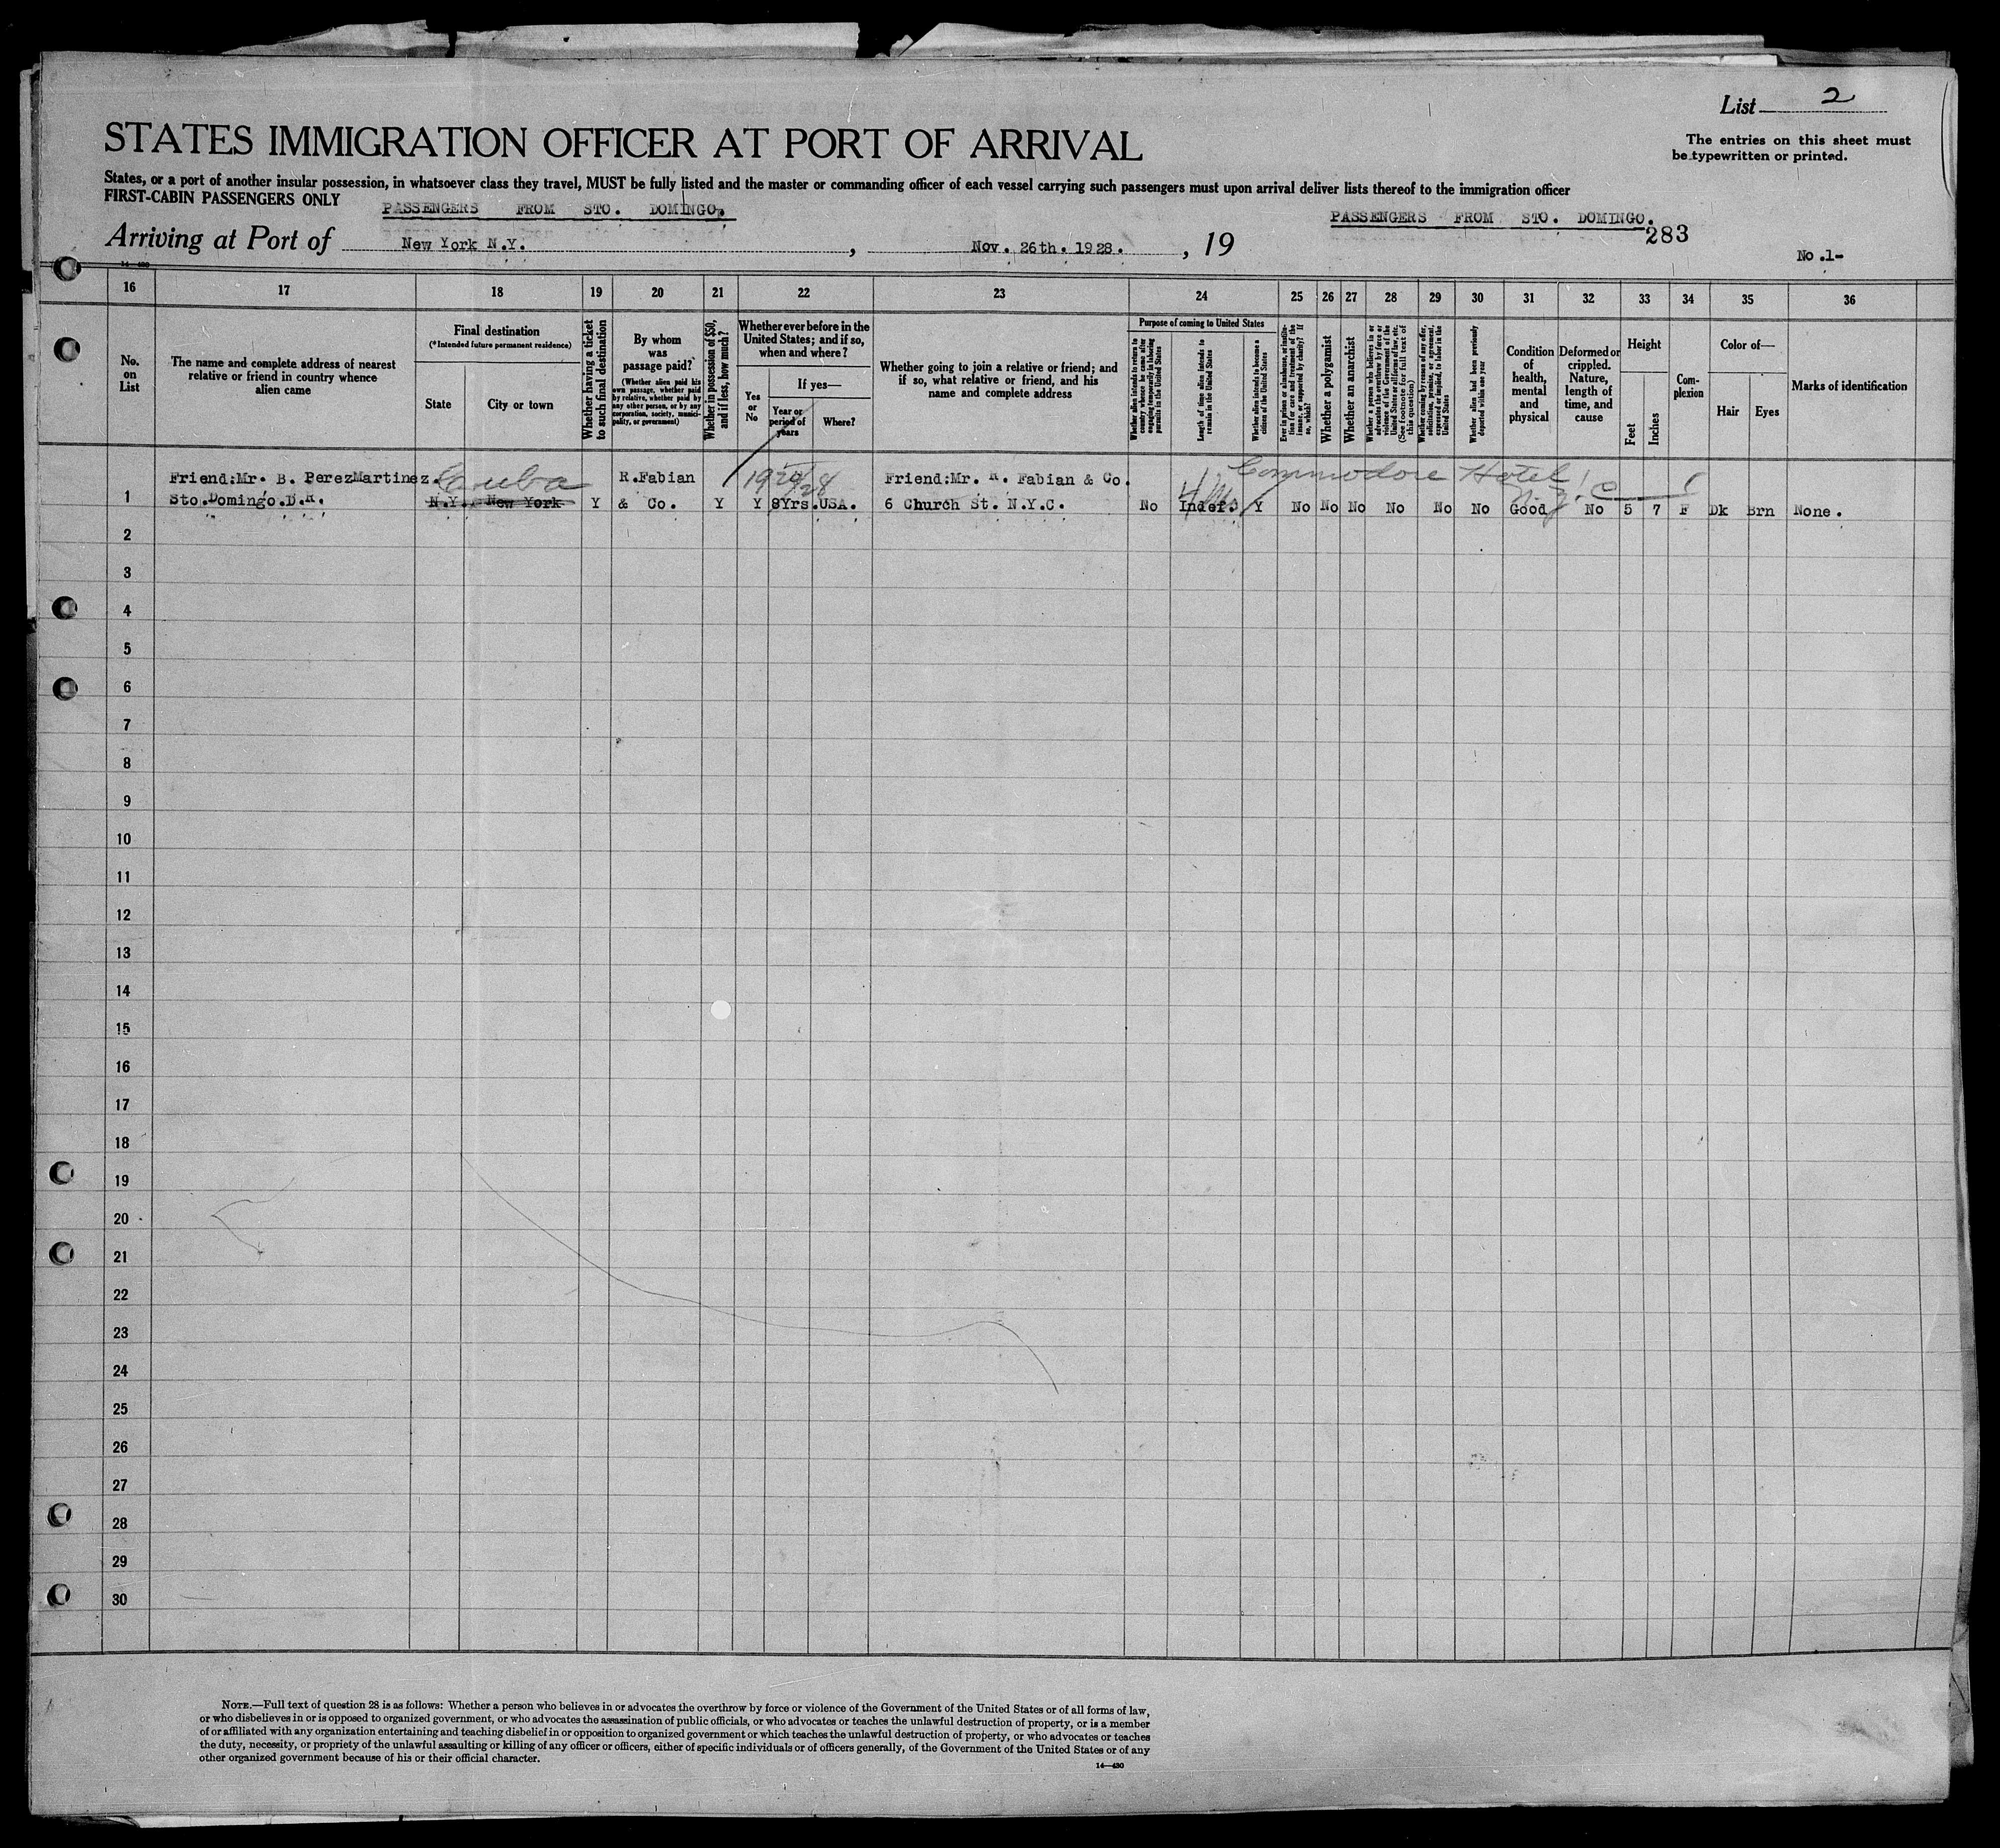 List 2
The entries on this sheet must
be typewritten or printed.
STATES IMMIGRATION OFFICER AT PORT OF ARRIVAL
States, or a port of another insular possession, in whatsoever class they travel, MUST be fully listed and the master or commanding officer of each vessel carrying such passengers must upon arrival deliver lists thereof to the immigration officer
FIRST-CABIN PASSENGERS ONLY
PASSENGERS FROM STO. DOMINGO.
PASSENGERS FROM STO. DOMINGO.
Arriving at Port of New York N.Y. , Nov. 26th. 1928. , 19
283
No.1-
14-430
16 17 18 19 20 21 22 23 24 25 26 27 28 29 30 31 32 33 34 35 36
No.
on
List
The name and complete address of nearest
relative or friend in country whence
alien came
Final destination
(*Intended future permanent residence)
State
City or town
Whether having a ticket
to such final destination
By whom
was
passage paid?
(Whether alien paid his
own passage, whether paid
by relative, whether paid by
any other person, or by any
corporation, society, munici-
pality, or government)
Whether in possession of $50,
and if less, how much?
Whether ever before in the
United States; and if so,
when and where?
Yes
or
No
If yes—
Year or
period of
years
Where?
Whether going to join a relative or friend; and
if so, what relative or friend, and his
name and complete address
Purpose of coming to United States
Whether alien intends to return to
country whence he came after
engaging temporarily in laboring
pursuits in the United States
Length of time alien intends to
remain in the United States
Whether alien intends to become a
citizen of the United States
Ever in prison or almshouse, or institu-
tion for care and treatment of the
insane, or supported by charity? If
so, which?
Whether a polygamist
Whether an anarchist
Whether a person who believes in or
advocates the overthrow by force or
violence of the Government of the
United States or all forms of law, etc.
(See footnote for full text of
this question)
Whether coming by reason of any offer,
solicitation, promise, or agreement,
expressed or implied, to labor in the
United States
Whether alien had been previously
deported within one year
Condition
of
health,
mental
and
physical
Deformed or
crippled.
Nature,
length of
time, and
cause
Height
Feet
Inches
Com-
plexion
Color of—
Hair
Eyes
Marks of identification
Friend:Mr. B. PerezMartinez. Cuba R.Fabian Friend:Mr. R. Fabian & Co. Commodore Hotel
1 Sto.Domingo.D.R. N.Y. New York Y & Co. Y Y 8Yrs.USA. 6 Church St. N.Y.C. No Indef. Y No No No No No No Good No 5 7 F Dk Brn None.
2
3
4
5
6
7
8
9
10
11
12
13
14
15
16
17
18
19
20
21
22
23
24
25
26
27
28
29
30
NOTE.—Full text of question 28 is as follows: Whether a person who believes in or advocates the overthrow by force or violence of the Government of the United States or of all forms of law,
or who disbelieves in or is opposed to organized government, or who advocates the assassination of public officials, or who advocates or teaches the unlawful destruction of property, or is a member
of or affiliated with any organization entertaining and teaching disbelief in or opposition to organized government or which teaches the unlawful destruction of property, or who advocates or teaches
the duty, necessity, or propriety of the unlawful assaulting or killing of any officer or officers, either of specific individuals or of officers generally, of the Government of the United States or of any
other organized government because of his or their official character.
14—430